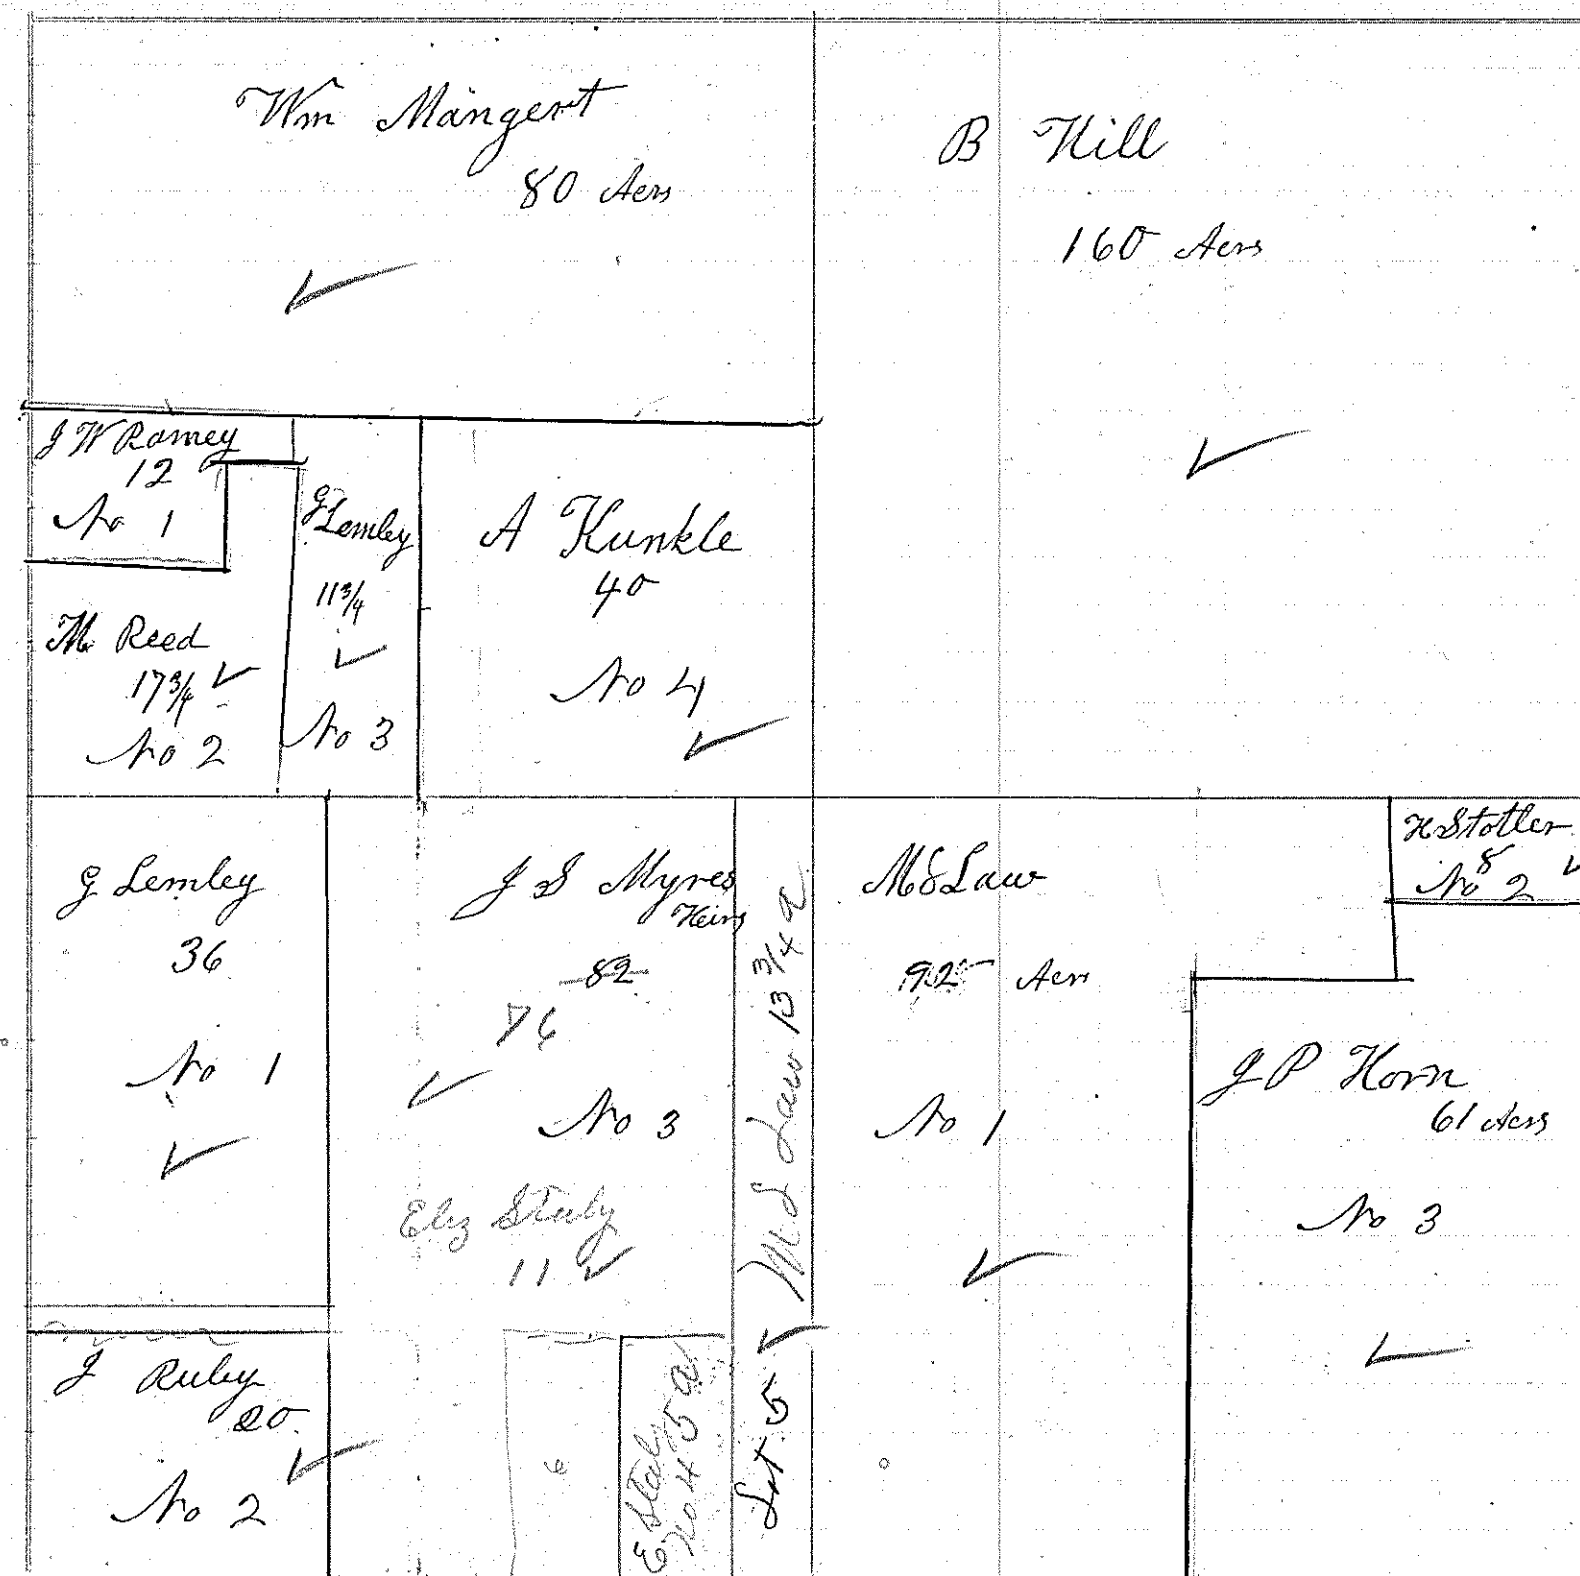 Wm Mangert
80 Acrs
B Hill
160 Acrs
J W Ramey
12
No 1
M Reed
17 3/4
No 2
G Lemley
11 3/4
No 3
A Kunkle
40
No 4
G Lemley
36
No 1
J S Myres
Heirs
82
76
No 3
Eliz Staly
11
M S Law 13 3/4 a
Lot 5
M S Law
92 Acrs
No 1
H Stotler
8
No 2
J P Horn
61 Acrs
No 3
J Ruby
20
No 2
6
E. Staly
No 4 5 a